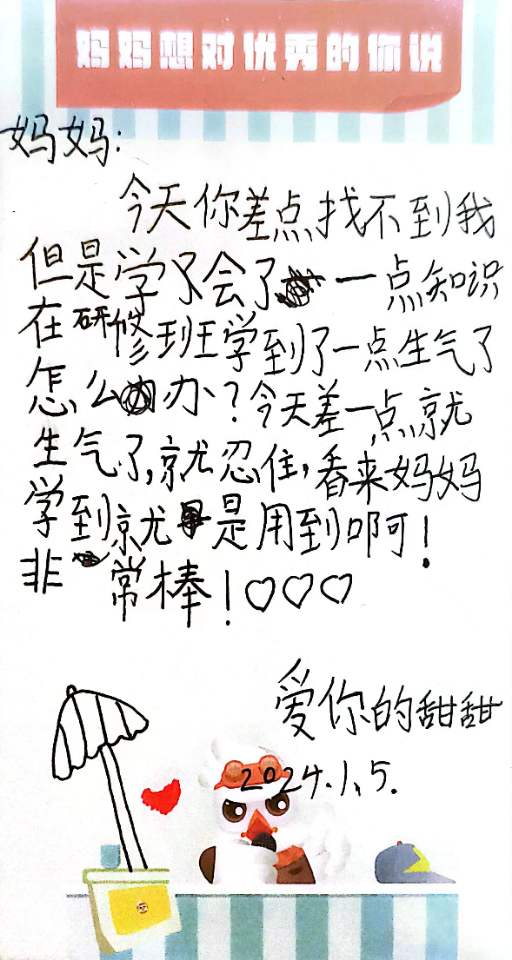 妈妈想对优秀的你说
妈妈：
今天你差点找不到我
但是学了会了一点知识
在研修班学到了一点生气了
怎么办？今天差一点就
生气了，就忍住，看来妈妈
学到就是用到啊！
非常棒！♡♡♡
爱你的甜甜
2024.1.5.